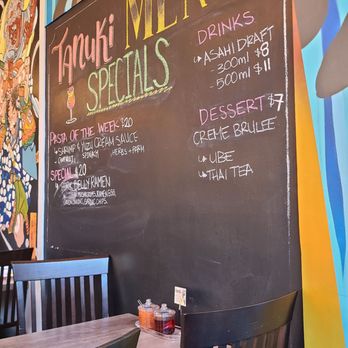 Tanuki MEN
SPECIALS
PASTA OF THE WEEK $20
SHRIMP & YUZU CREAM SAUCE
SPINACH HERBS + PARM
SPECIAL $20
BELLY RAMEN
GARLIC CHIPS
DRINKS
ASAHI DRAFT
- 300ml $8
- 500ml $11
DESSERT $7
CREME BRULEE
UBE
THAI TEA